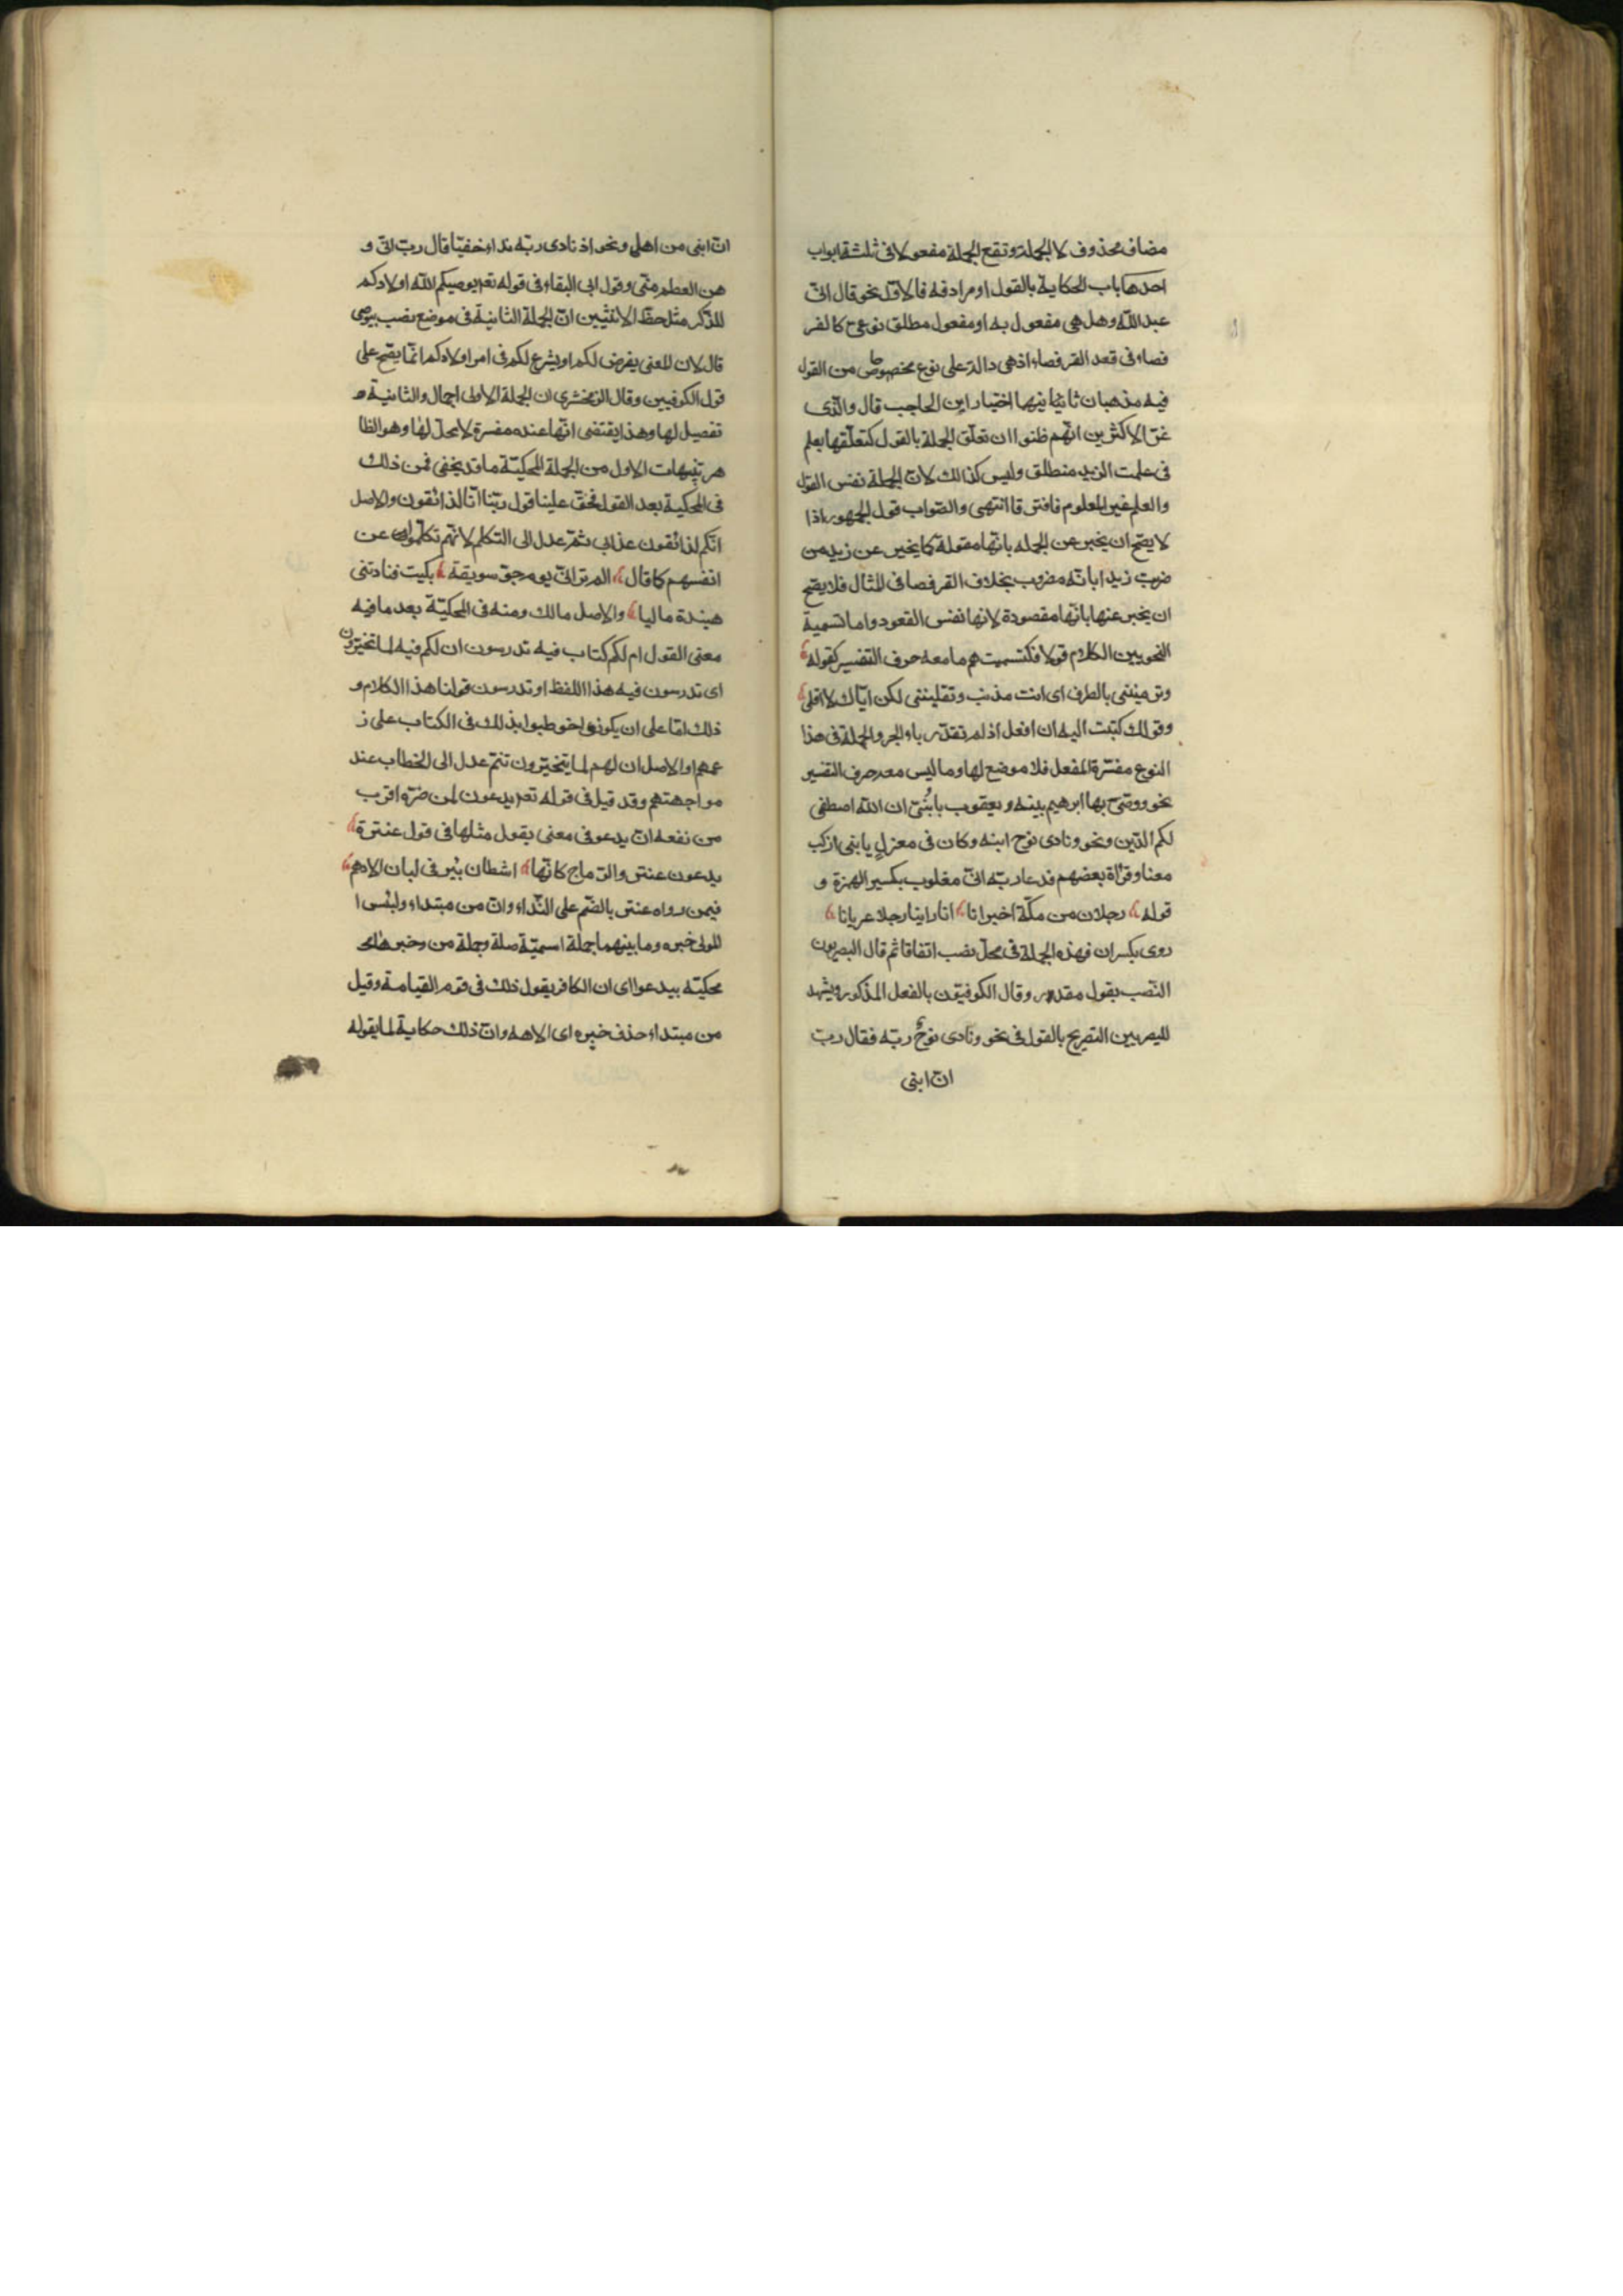 مضاف محذوف لا الجملة وتقع الجملة مفعولا فى ثلثة ابواب
احدها باب الحكاية بالقول او مرادفه فالاوّل نحو قال انّى
عبد اللّه وهل هى مفعول به او مفعول مطلق نوعىّ كالقر
فصاء فى قعد القرفصاء اذ هى دالة على نوع مخصوص من القول
فيه مذهبان ثانيهما اختيار ابن الحاجب قال والّذى
غرّ الاكثرين انّهم ظنوا ان تعلّق الجملة بالقول كتعلّقها بعلم
فى علمت لزيد منطلق وليس كذالك لانّ الجملة نفس القول
والعلم غير المعلوم فافترقا انتهى والصّواب قول الجمهور اذا
لا يصّح ان يخبر عن الجمله بانّها مقولة كما يخبر عن زيد من
ضربت زيدا بانّه مضروب بخلاف القرفصا فى المثال فلا يصّح
ان يخبر عنها بانّها مقصودة لانها نفس القعود واما تسمية
النحويين الكلام قولا فكتسميتهم مامعه حرف التفسير كقوله
وترميننى بالطرف اى انت مذنب وتقليننى لكن ايّاك لا اقلى
وقولك كتبت اليه ان افعل اذ لم تقدّر باء الجر والجملة فى هذا
النوع مفسّرة للفعل فلا موضع لها وما ليس معه حرف التفسير
نحو ووصّى بها ابرهيم بينه ويعقوب يا بُنَىّ ان اللّه اصطفى
لكم الدّين ونحو ونادى نوح ابنه وكان فى معزلٍ يا بنى اركب
معنا وقرٔاة بعضهم فدعا ربّه انّى مغلوب بكسر الهمزة و
قوله رجلان من مكّة اخبرانا انا راينا رجلا عريانا
روى بكسر ان فهذه الجملة فى محلّ نصب اتفاقا ثم قال البصريون
النّصب بقول مقدر وقال الكوفيّون بالفعل المذكور ويشهد
للبصريين التّصريح بالقول فى نحو ونادى نوحٌ ربّه فقال ربّ
انّ ابنى
انّ ابنى من اهلى ونحو اذ نادى ربّه نداء خفيّا قال ربّ انّى و
هن العظم منّى وقول ابى البقاء فى قوله تعم يوصيكم اللّه اولادكم
للذّكر مثل حظّ الانثيين انّ الجملة الثانية فى موضع نصب بيوصى
قال لان المعنى يفرض لكم او يشرع لكم فى امر اولادكم انّما يصّح على
قول الكوفيين وقال الزمخشرى ان الجملة الاولى اجمال والثانية
تفصيل لها وهذا يقتضى انّها عنده مفسرة لا محلّ لها وهو الظا
هر تنبيهات الاول من الجملة المحكيّة ما قد يخفى فمن ذلك
فى المحكية بعد القول فحقّ علينا قول ربّنا انّا لذائقون والاصل
انّكم لذائقون عذابى ثمّ عدل الى التكلم لانّهم تكلّموا عن
انفسهم كما قال الم تر انّى يوم جوّ سويقة بكيت فنادتنى
هنيدة ماليا والاصل مالك ومنه فى المحكيّة بعد ما فيه
معنى القول ام لكم كتاب فيه تدرسون ان لكم فيه لما تخيّرون
اى تدرسون فيه هذا اللفظ او تدرسون قولنا هذا الكلام و
ذلك امّا على ان يكونوا خوطبوا بذلك فى الكتاب على ز
عمهم او الاصل ان لهم لما يتخيّرون ثم عدل الى الخطاب عند
مواجهتهم وقد قيل فى قوله تعم يدعون لمن ضرّه اقرب
من نفعه انّ يدعو فى معنى يقول مثلها فى قول عنترة
يدعون عنتر والرّماح كانّها اشطان بئر فى لبان الادهم
فيمن رواه عنتر بالضّم على النّداء وانّ من مبتداء ولبئس ا
لمولى خبره وما بينهما جملة اسميّة صلة وجملة من وخبرها
محكيّه بيدعوا اى ان الكافر يقول ذلك فى يوم القيامة وقيل
من مبتداء حذف خبره اى الاهه وانّ ذلك حكاية لما يقوله